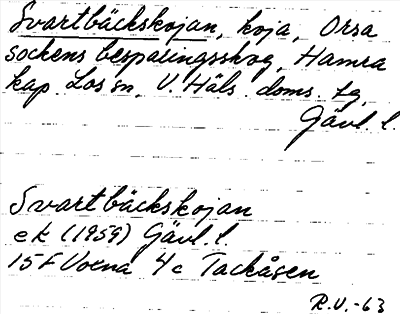 Svartbäckskojan, koja, Orsa
sockens besparingsskog, Hamra
kap. Los sn, V. Häls. doms. lg,
Gävl. l.
Svartbäckskojan
ek (1959) Gävl. l.
15F Voxna 4c Tackåsen
R.V.-63